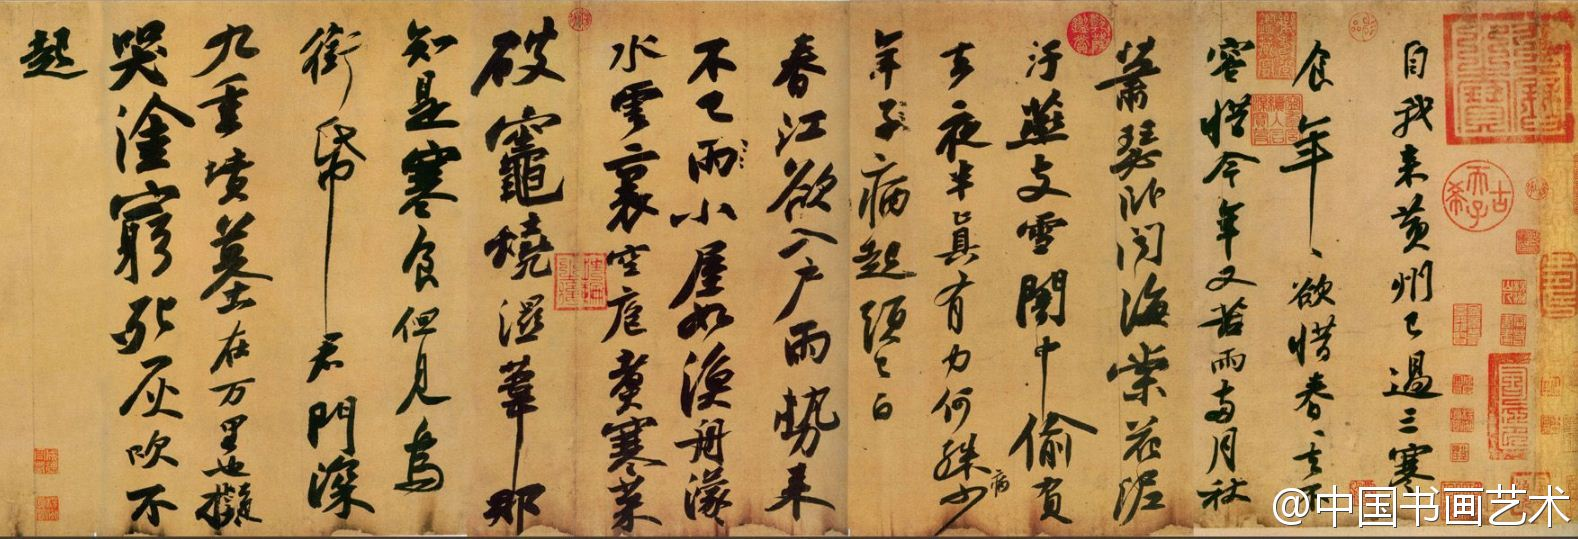 自我来黄州已過三寒
食年〻欲惜春〻去不
容惜今年又苦雨兩月秋
蕭瑟卧聞海棠花泥
汙燕支雪闇中偷負
去夜半真有力何殊少
年子病起頭已白
春江欲入户雨勢来
不已雨小屋如漁舟濛〻
水雲裏空庖煑寒菜
破竈燒濕葦那
知是寒食但見烏
銜帋君門深
九重墳墓在万里也擬
哭塗窮死灰吹不
起
@中国书画艺术